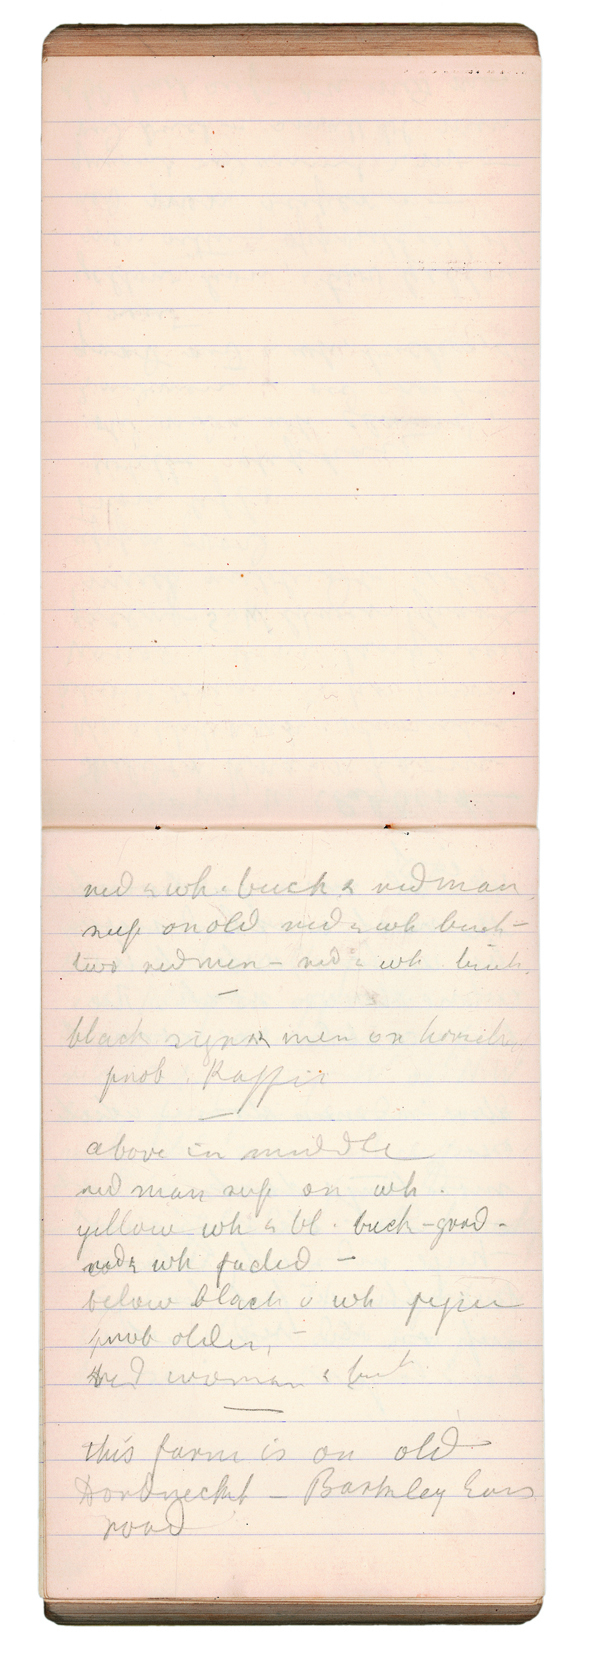 red & wh. buck & red man
sup on old red & wh buck -
two red men - red & wh buck.
—
black signs & men on
prob. Kaffir
—
above in middle
red man sup on wh.
yellow wh & bl. buck - good -
red & wh faded -
below black & wh figure
prob older, -
red woman &
—
this farm is on old
Dordrecht - Barkley East
road